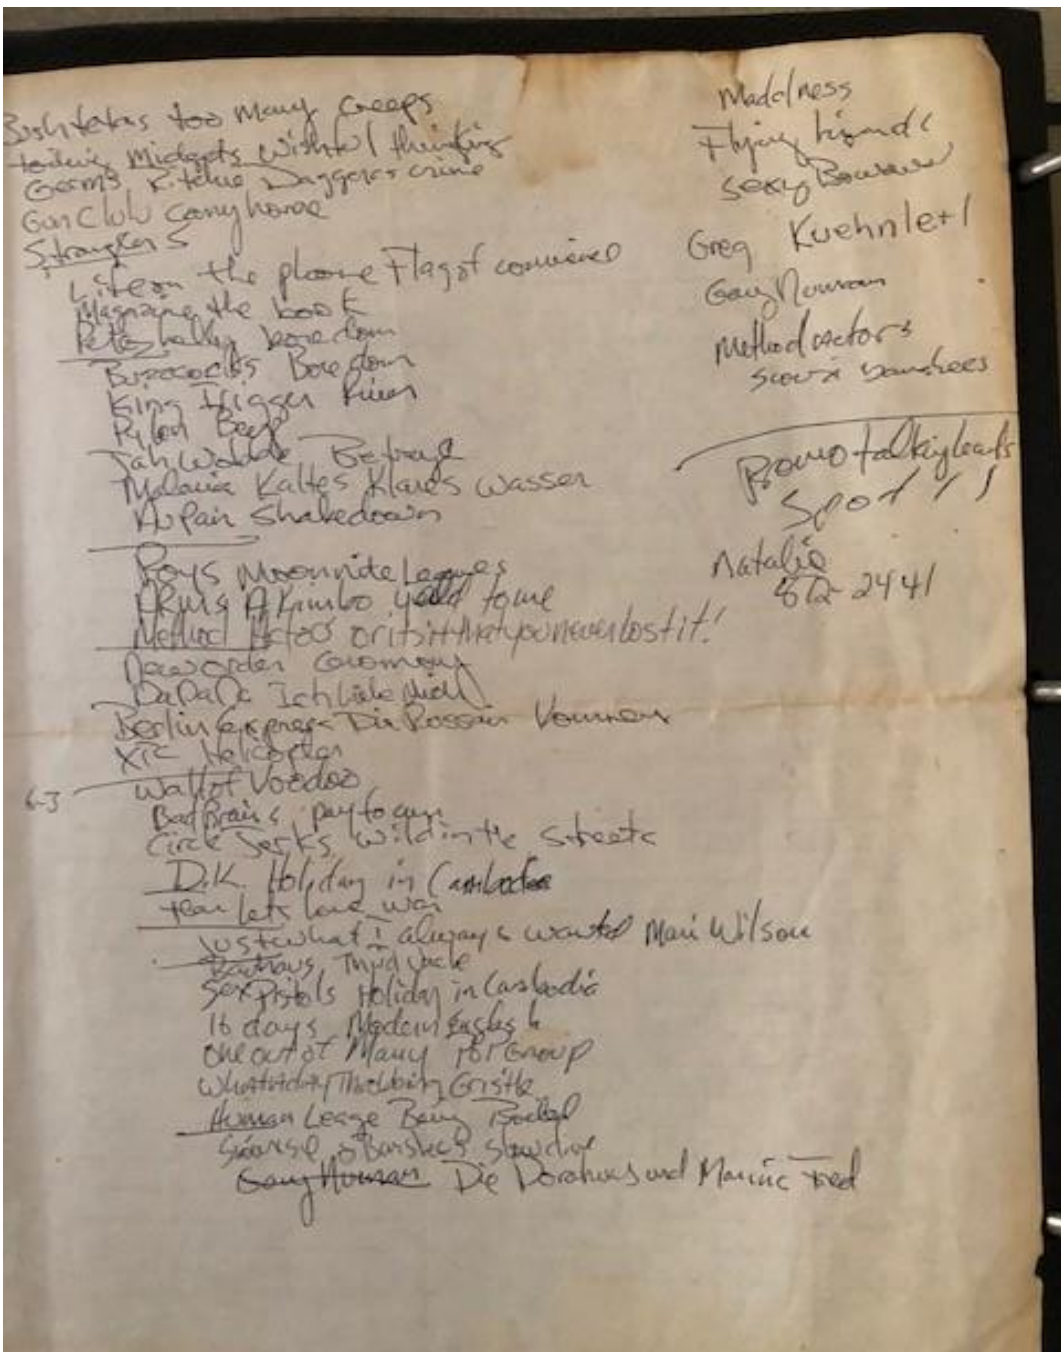 Bushtetras too many creeps
Midgets Wishful thinking
Germs, Ritchie Daggers crime
Gun Club Carry home
Stranglers
Life on the phone Flag of convience
Magazine the book
Pete Shelley boredom
Buzzcocks Boredom
King Trigger River
Pylon Beep
Jah Wobble Betrayl
Malaria Kaltes Klares Wasser
Au Pair Shakedown
Boys Moonnite Leagues
ARMS Akimbo to me
Method Actors or its it that you never lost it!
New order Ceromony
DaDaDa Ich liebe dich
Berlin Express Die Russian
XTC Helicopter
6-3
Wall of Voodoo
Bad Brains pay to cum
Circle Jerks, Wild in the Streets
D.K. Holiday in Cambodia
Fear Lets have war
Just what I always wanted Mari Wilson
Bauhaus, Third Uncle
Sex Pistols Holiday in Cambodia
16 days Modern English
One out of Many Pop Group
What a day Throbbing Gristle
Human Leage Being Boiled
Siouxsie & Banshees
Gary Numan Die Doraus und Marinic Fred
Maddness
Flying Lizards
Sexy
Greg Kuehnlet
Gary Numan
Method actors
Sioux banshees
Promo talkingheads
Spot !!
Natalie
872-2441